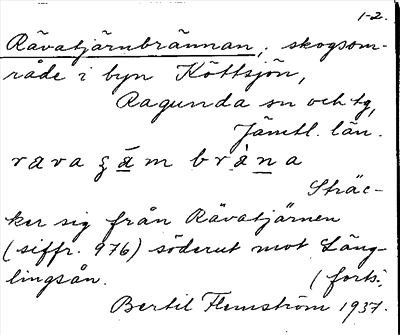 1-2.
Rävatjärnbrännan, skogsom-
råde i byn Köttsjön,
Ragunda sn och tg,
Jämtl. län.
Sträc-
ker sig från Rävatjärnen
(siffr. 976) söderut mot Läng-
lingsån. (forts.
Bertil Flemström 1937.